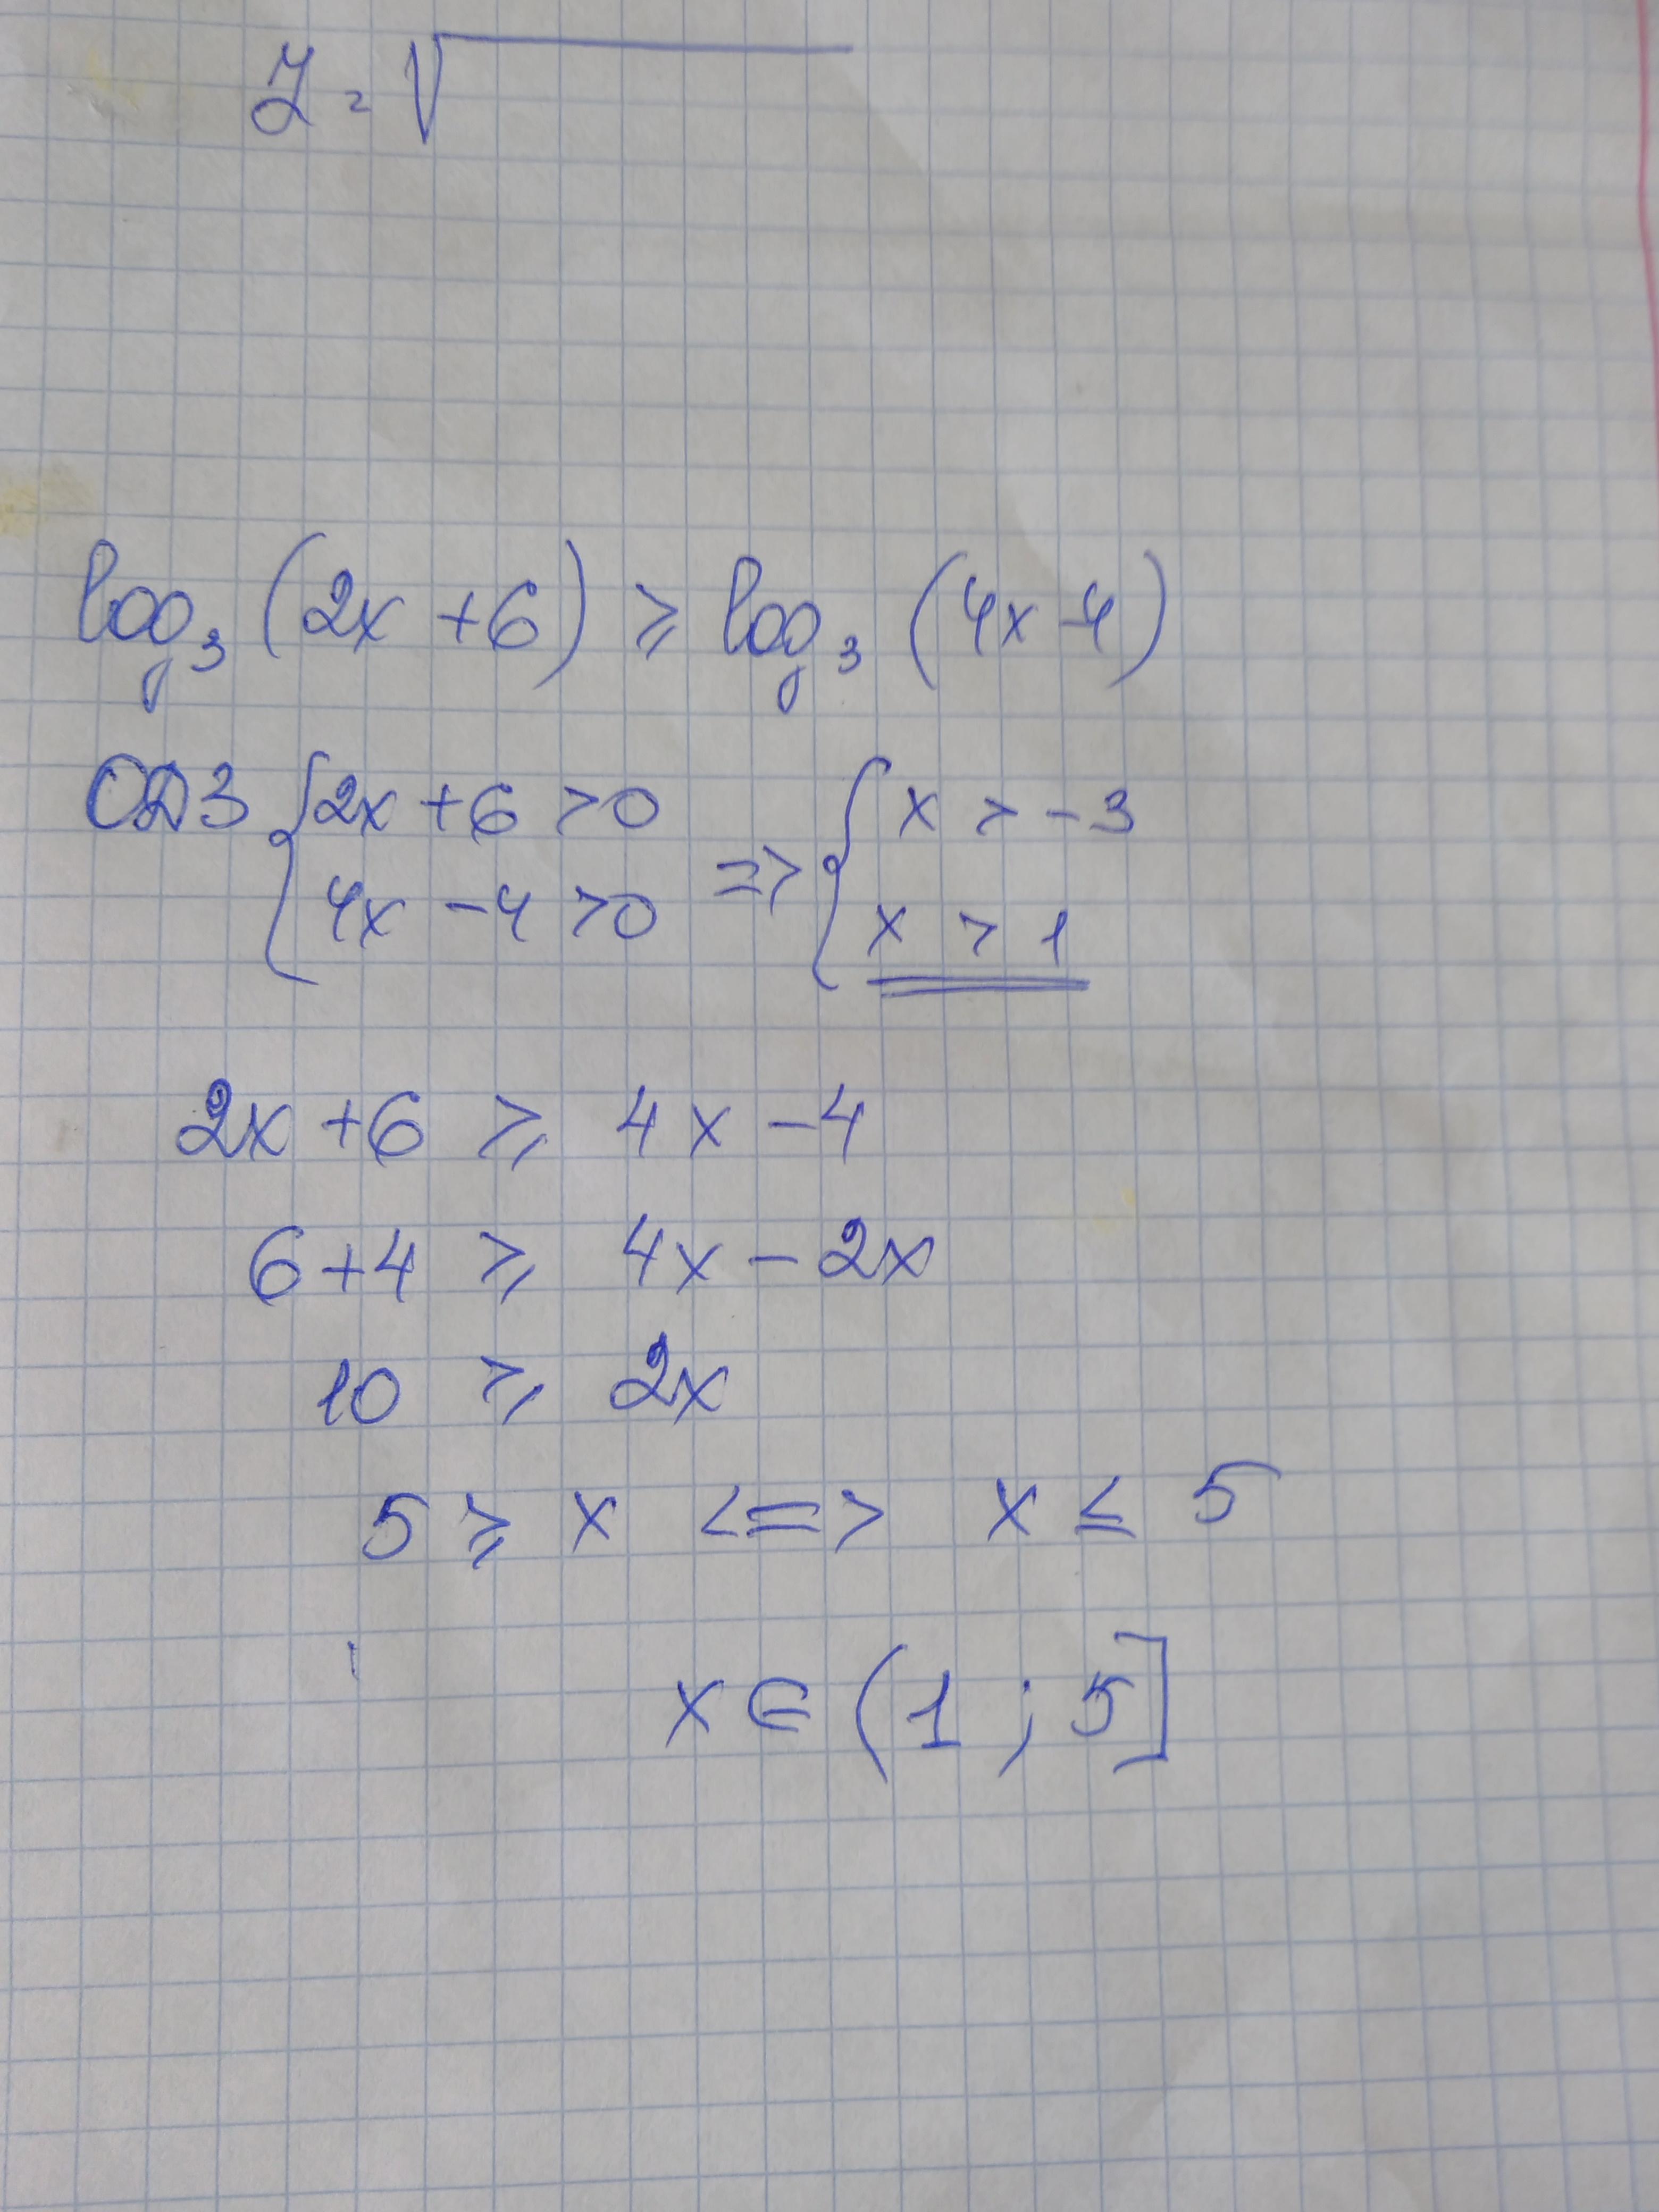 Z = √
log₃ (2x + 6) ≥ log₃ (4x - 4)
ОДЗ { 2x + 6 > 0 => { x > -3
4x - 4 > 0 x > 1
2x + 6 ≥ 4x - 4
6 + 4 ≥ 4x - 2x
10 ≥ 2x
5 ≥ x <=> x ≤ 5
x ∈ (1 ; 5]